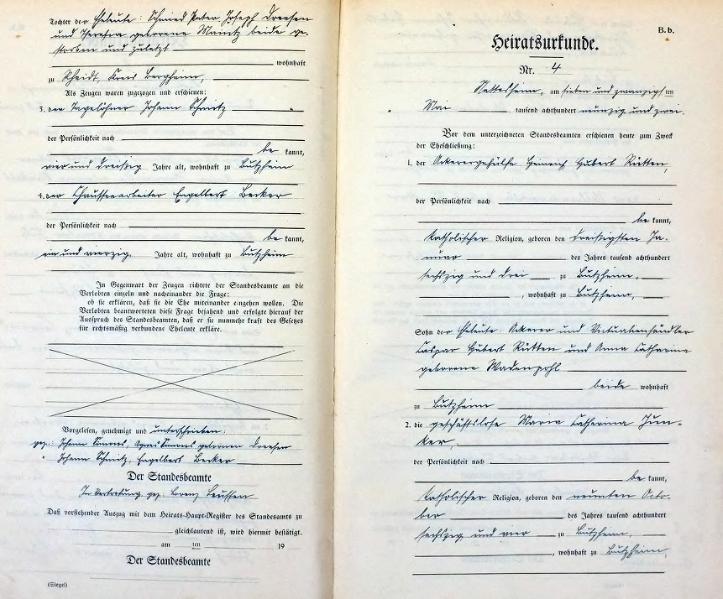 Tochter der Eheleute: Schmied Peter Joseph Dreesen
und Theresa geborene Manitz beide ge-
storben und zuletzt
wohnhaft
zu Scheidt, Kreis Bergheim,
Als Zeugen waren zugezogen und erschienen:
3. der Tagelöhner Johann Schmitz
der Persönlichkeit nach
be kannt,
vier und dreißig Jahre alt, wohnhaft zu Butzheim
4. der Chausseearbeiter Engelbert Becker
der Persönlichkeit nach
be kannt,
ein und vierzig Jahre alt, wohnhaft zu Butzheim
In Gegenwart der Zeugen richtete der Standesbeamte an die
Verlobten einzeln und nacheinander die Frage:
ob sie erklären, daß sie die Ehe miteinander eingehen wollen. Die
Verlobten beantworteten diese Frage bejahend und erfolgte hierauf der
Ausspruch des Standesbeamten, daß er sie nunmehr kraft des Gesetzes
für rechtmäßig verbundene Eheleute erkläre.
Vorgelesen, genehmigt und unterschrieben:
gez: Johann geborenen Dreesen
" Johann Schmitz, Engelbert Becker
Der Standesbeamte
In Vertretung gez. Lorenz Leussen
Daß vorstehender Auszug mit dem Heirats-Haupt-Register des Standesamts zu
gleichlautend ist, wird hiermit bestätigt.
am ten 19
Der Standesbeamte
(Siegel)
B.b.
Heiratsurkunde.
Nr. 4
Nettesheim, am sieben und zwanzigsten
Mai tausend achthundert neunzig und zwei
Vor dem unterzeichneten Standesbeamten erschienen heute zum Zweck
der Eheschließung:
1. der Ackerergehülfe Heinrich Hubert Rütten,
der Persönlichkeit nach
be kannt,
katholischer Religion, geboren den dreißigsten Ja-
nuar des Jahres tausend achthundert
sechszig und drei zu Butzheim,
, wohnhaft zu Butzheim,
Sohn der Eheleute Ackerer und
Caspar Hubert Rütten und Anna Catharina
geborene Wadenpohl
beide wohnhaft
zu Butzheim
2. die geschäftslose Maria Catharina Jun-
ker,
der Persönlichkeit nach
be kannt,
katholischer Religion, geboren den neunten Octo-
ber des Jahres tausend achthundert
sechszig und vier zu Butzheim,
, wohnhaft zu Butzheim,